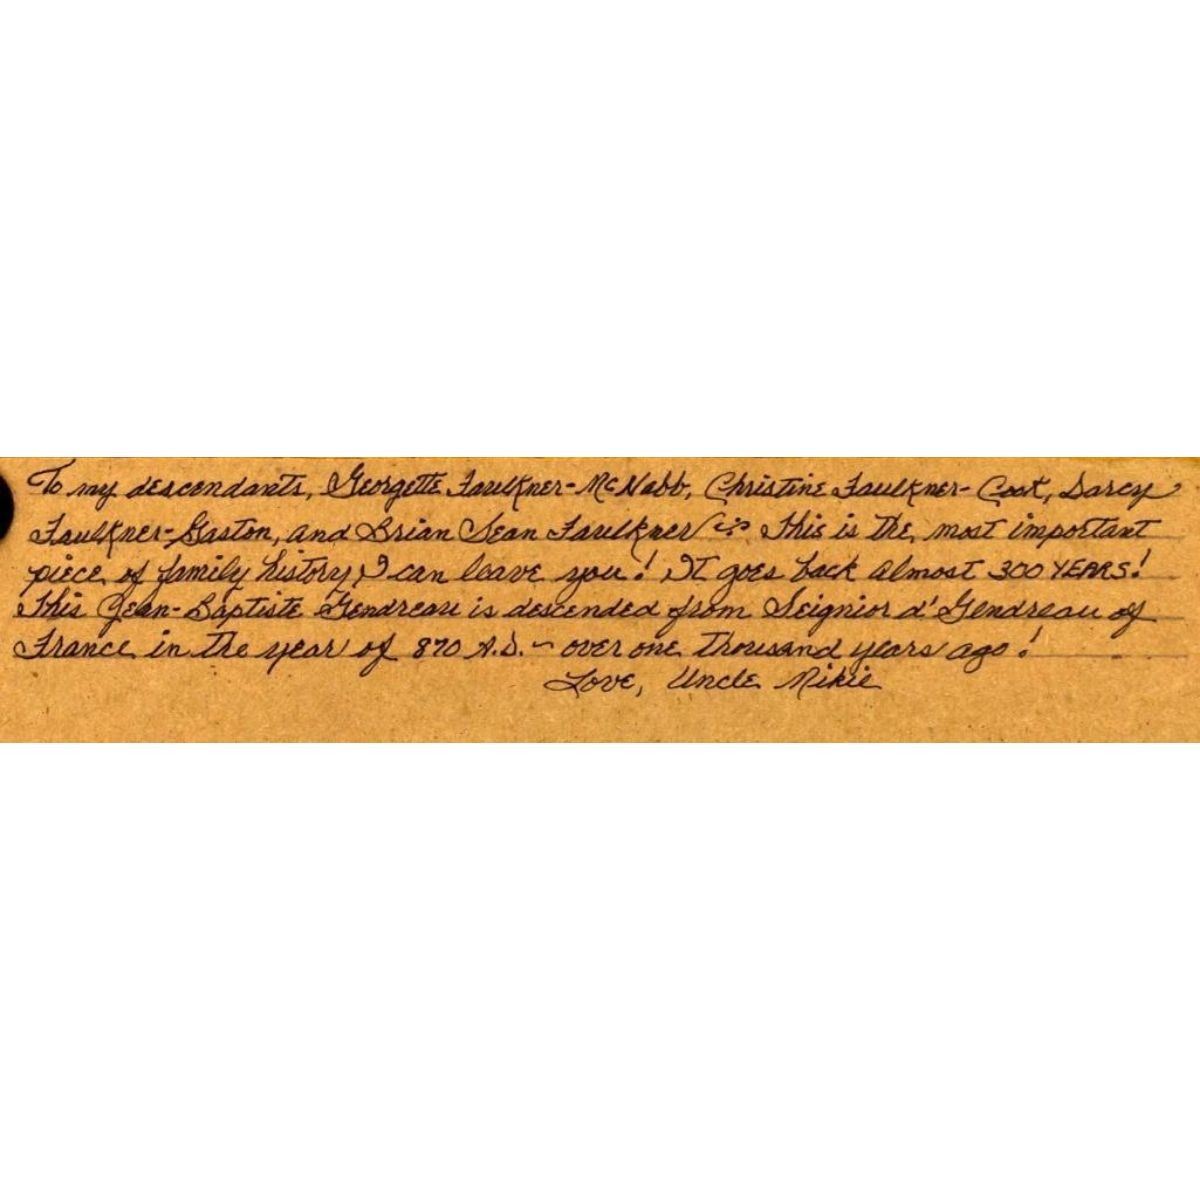 To my descendants, Georgette Faulkner-McNabb, Christine Faulkner-Cook, Darcy
Faulkner-Gaston, and Brian Sean Faulkner ~ This is the most important
piece of family history I can leave you! It goes back almost 300 YEARS!
This Jean-Baptiste Gendreau is descended from Seignior d'Gendreau of
France in the year of 870 A.D. ~ over one thousand years ago!
Love, Uncle Nikie